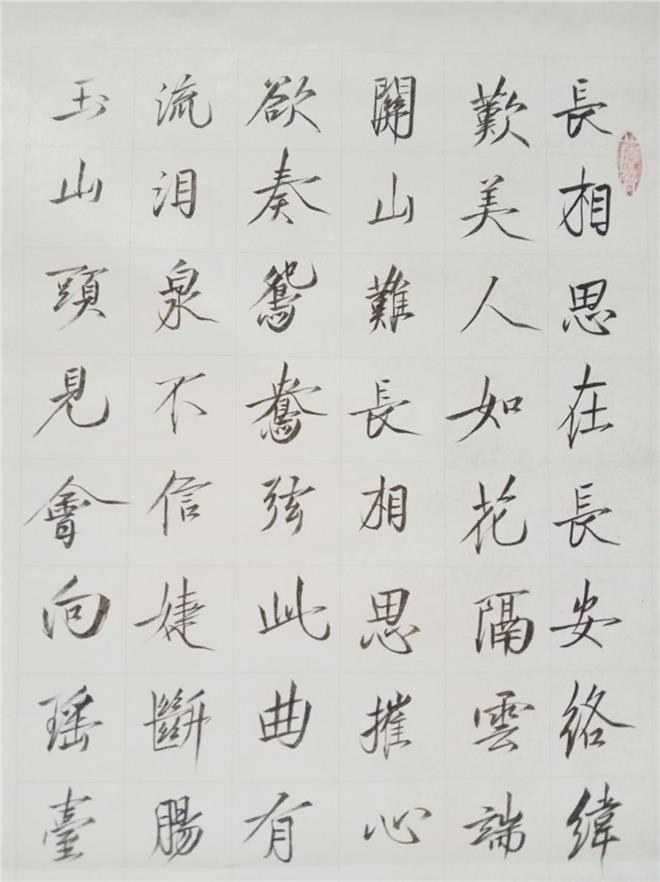 長相思在長安絡緯
歎美人如花隔雲端
關山難長相思摧心
欲奏鴛鴦弦此曲有
流泪泉不信婕斷腸
玉山頭見會向瑶臺